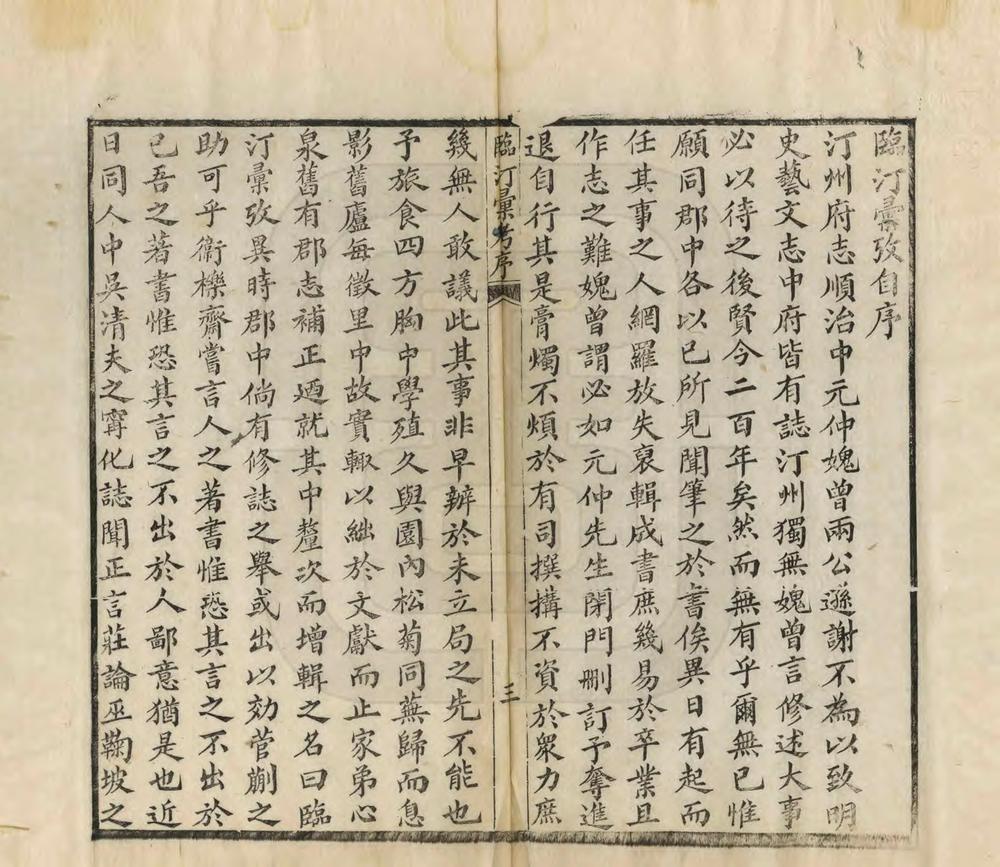 臨汀彙攷自序
汀州府志順治中元仲媿曾兩公遜謝不為以致明
史藝文志中府皆有誌汀州獨無媿曾言修述大事
必以待之後賢今二百年矣然而無有乎爾無已惟
願同郡中各以已所見聞筆之於書俟異日有起而
任其事之人網羅放失裒輯成書庶幾易於卒業且
作志之難媿曾謂必如元仲先生閉門刪訂予奪進
退自行其是膏燭不煩於有司撰搆不資於衆力庶
臨汀彙考序
三
幾無人敢議此其事非早辦於未立局之先不能也
予旅食四方胸中學殖久與園內松菊同蕪歸而息
影舊廬每徵里中故實輙以絀於文獻而止家弟心
泉舊有郡志補正迺就其中釐次而增輯之名曰臨
汀彙攷異時郡中倘有修誌之舉或出以効菅蒯之
助可乎衞櫟齋嘗言人之著書惟恐其言之不出於
已吾之著書惟恐其言之不出於人鄙意猶是也近
日同人中吳清夫之甯化誌聞正言莊論巫鞠坡之